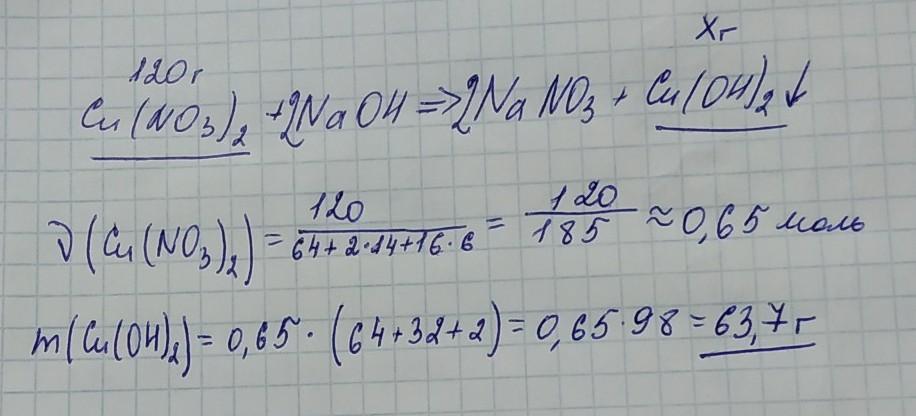 xг
120г
Cu(NO₃)₂ + 2NaOH => 2NaNO₃ + Cu(OH)₂↓
ν(Cu(NO₃)₂) = 120/(64+2·14+16·6) = 120/185 ≈ 0,65 моль
m(Cu(OH)₂) = 0,65 · (64+32+2) = 0,65·98 = 63,7 г